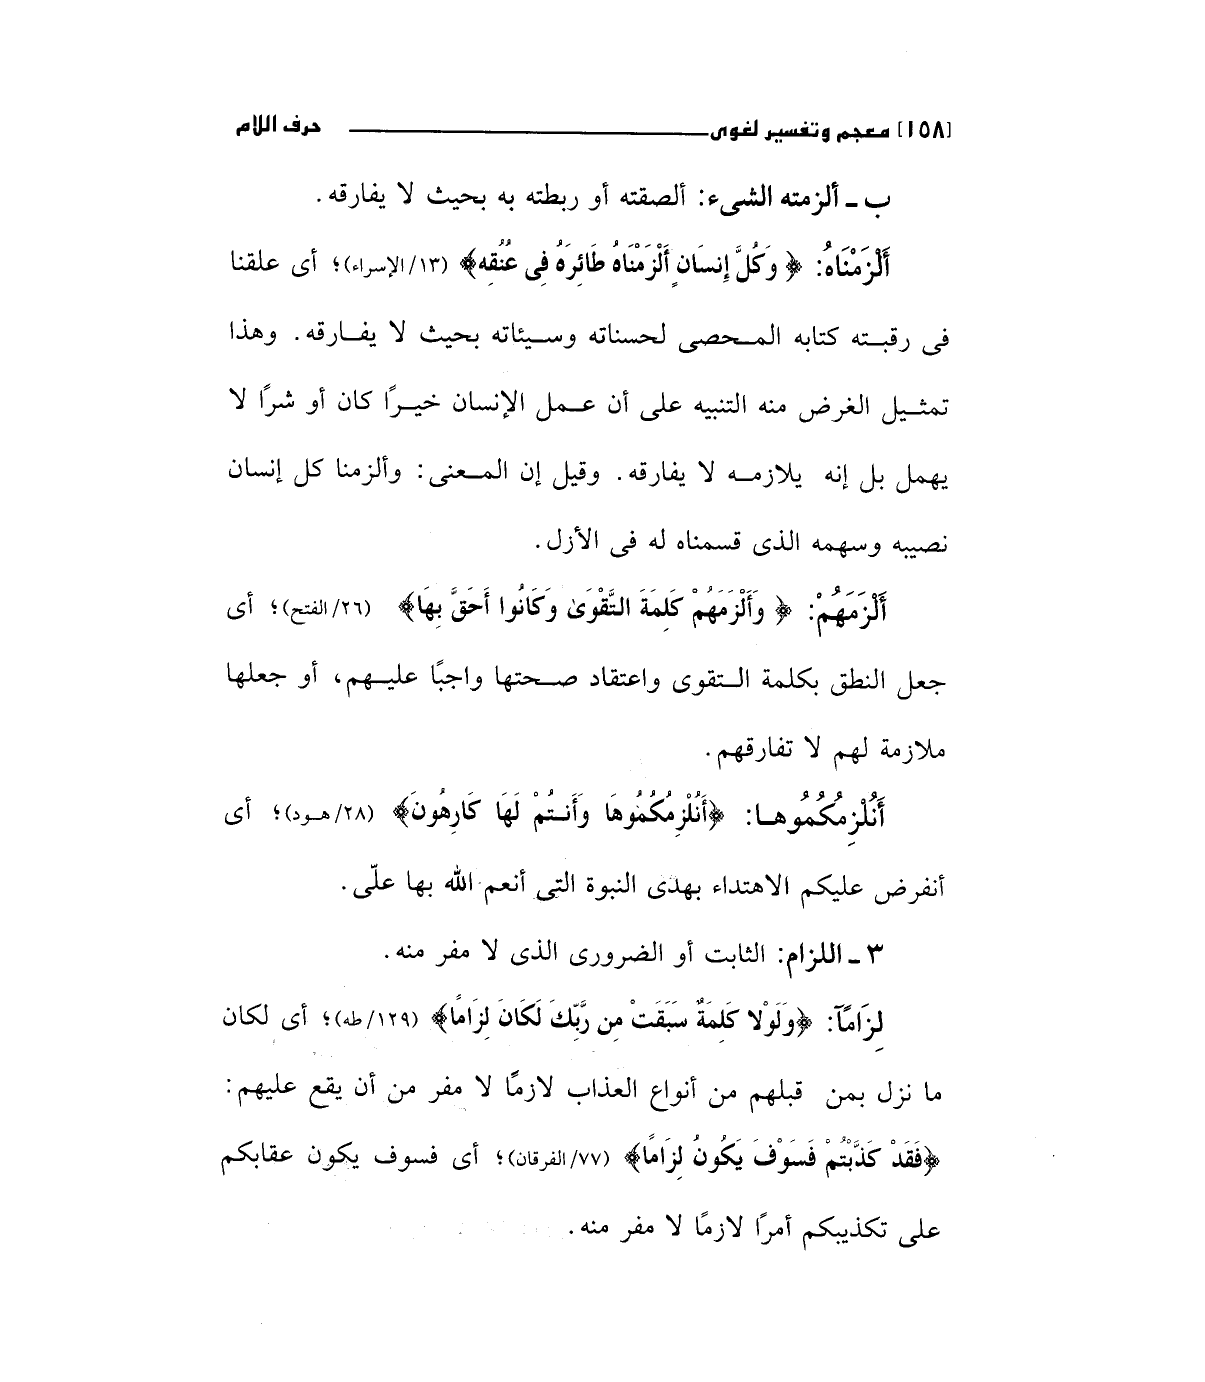 [١٥٨] معجم وتفسير لغوى ــــــــ حرف اللام
ب ـ ألزمته الشىء: ألصقته أو ربطته به بحيث لا يفارقه.
أَلْزَمْنَاهُ: ﴿ وَكُلَّ إِنسَانٍ أَلْزَمْنَاهُ طَائِرَهُ فِى عُنُقِهِ﴾ (١٣/الإسراء)؛ أى علقنا
فى رقبته كتابه المحصى لحسناته وسيئاته بحيث لا يفارقه. وهذا
تمثيل الغرض منه التنبيه على أن عمل الإنسان خيرًا كان أو شرًا لا
يهمل بل إنه يلازمه لا يفارقه. وقيل إن المعنى: وألزمنا كل إنسان
نصيبه وسهمه الذى قسمناه له فى الأزل.
أَلْزَمَهُمْ: ﴿ وَأَلْزَمَهُمْ كَلِمَةَ التَّقْوَىٰ وَكَانُوا أَحَقَّ بِهَا﴾ (٢٦/الفتح)؛ أى
جعل النطق بكلمة التقوى واعتقاد صحتها واجبًا عليهم، أو جعلها
ملازمة لهم لا تفارقهم.
أَنُلْزِمُكُمُوهـا: ﴿أَنُلْزِمُكُمُوهَا وَأَنتُمْ لَهَا كَارِهُونَ﴾ (٢٨/هود)؛ أى
أنفرض عليكم الاهتداء بهدى النبوة التى أنعم الله بها علّى.
٣ ـ اللزام: الثابت أو الضرورى الذى لا مفر منه.
لِزَامًا: ﴿وَلَوْلا كَلِمَةٌ سَبَقَتْ مِن رَّبِّكَ لَكَانَ لِزَامًا﴾ (١٢٩/طه)؛ أى لكان
ما نزل بمن قبلهم من أنواع العذاب لازمًا لا مفر من أن يقع عليهم:
﴿فَقَدْ كَذَّبْتُمْ فَسَوْفَ يَكُونُ لِزَامًا﴾ (٧٧/الفرقان)؛ أى فسوف يكون عقابكم
على تكذيبكم أمرًا لازمًا لا مفر منه.